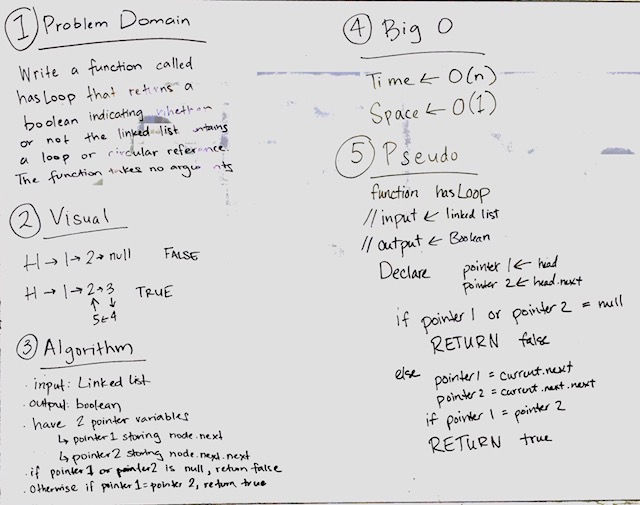 1 Problem Domain
Write a function called
hasLoop that returns a
boolean indicating whether
or not the linked list contains
a loop or circular reference.
The function takes no arguments
2 Visual
H → 1 → 2 → null FALSE
H → 1 → 2 → 3 TRUE
↑ ↓
5 ← 4
3 Algorithm
· input: Linked list
· output: boolean
· have 2 pointer variables
↳ pointer 1 storing node.next
↳ pointer 2 storing node.next.next
· if pointer 1 or pointer 2 is null, return false
· Otherwise if pointer 1 = pointer 2, return true
4 Big O
Time ← O(n)
Space ← O(1)
5 Pseudo
function hasLoop
// input ← linked list
// output ← Boolean
Declare pointer 1 ← head
pointer 2 ← head.next
if pointer 1 or pointer 2 = null
RETURN false
else pointer 1 = current.next
pointer 2 = current.next.next
if pointer 1 = pointer 2
RETURN true